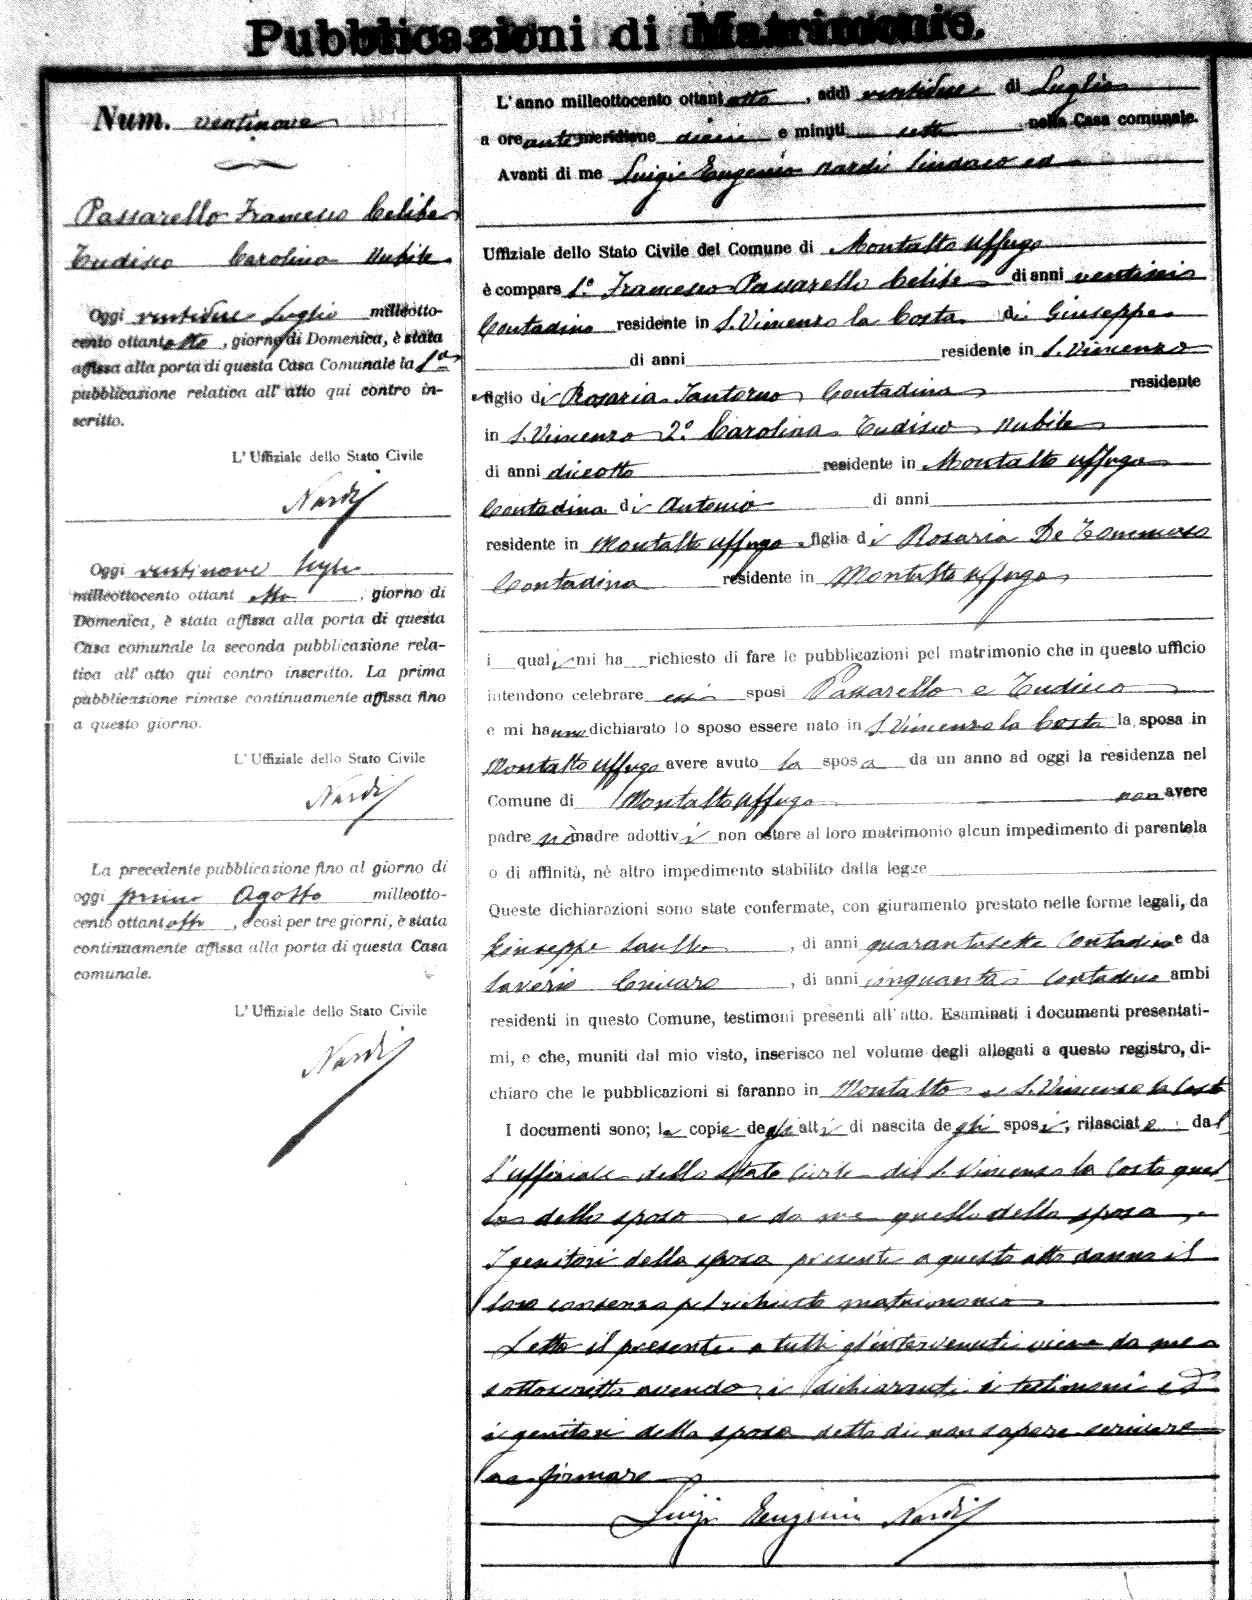 Pubblicazioni di Matrimonio.
Num. ventinove
Passarello Francesco Celibe
Tudisco Carolina Nubile
Oggi ventidue Luglio milleotto-
cento ottantotto, giorno di Domenica, è stata
affissa alla porta di questa Casa Comunale la 1ª
pubblicazione relativa all'atto qui contro in-
scritto.
L'Uffiziale dello Stato Civile
Nardi
Oggi ventinove luglio
milleottocento ottant otto, giorno di
Domenica, è stata affissa alla porta di questa
Casa comunale la seconda pubblicazione rela-
tiva all'atto qui contro inscritto. La prima
pubblicazione rimase continuamente affissa fino
a questo giorno.
L'Uffiziale dello Stato Civile
Nardi
La precedente pubblicazione fino al giorno di
oggi primo Agosto milleotto-
cento ottantotto, e così per tre giorni, è stata
continuamente affissa alla porta di questa Casa
comunale.
L'Uffiziale dello Stato Civile
Nardi
L'anno milleottocento ottantotto, addì ventidue di Luglio
a ore antimeridiane dieci e minuti sette nella Casa comunale.
Avanti di me Luigi Eugenio Nardi Sindaco ed
Uffiziale dello Stato Civile del Comune di Montalto Uffugo
è compars 1º Francesco Passarello Celibe di anni ventisei
Contadino residente in S. Vincenzo la Costa di Giuseppe
di anni residente in S. Vincenzo
e figlio di Rosaria Santoruo Contadina residente
in S. Vincenzo 2º Carolina Tudisco Nubile
di anni diciotto residente in Montalto Uffugo
Contadina di Antonio di anni
residente in Montalto Uffugo figlia di Rosaria De Tommaso
Contadina residente in Montalto Uffugo
i quali mi ha richiesto di fare le pubblicazioni pel matrimonio che in questo ufficio
intendono celebrare essi sposi Passarello e Tudisco
e mi hanno dichiarato lo sposo essere nato in S. Vincenzo la Costa la sposa in
Montalto Uffugo avere avuto la sposa da un anno ad oggi la residenza nel
Comune di Montalto Uffugo non avere
padre nè madre adottivi non ostare al loro matrimonio alcun impedimento di parentela
o di affinità, nè altro impedimento stabilito dalla legge
Queste dichiarazioni sono state confermate, con giuramento prestato nelle forme legali, da
Giuseppe, di anni quarantasette contadino e da
Saverio, di anni cinquanta contadino ambi
residenti in questo Comune, testimoni presenti all'atto. Esaminati i documenti presentati-
mi, e che, muniti dal mio visto, inserisco nel volume degli allegati a questo registro, di-
chiaro che le pubblicazioni si faranno in Montalto e S. Vincenzo la Costa
I documenti sono; le copie degli atti di nascita degli sposi, rilasciate dal
l'uffiziale dello Stato Civile di S. Vincenzo la Costa quel
lo dello sposo e da me quello della sposa
I genitori della sposa presenti a questo atto danno il
loro consenso pel richiesto matrimonio
Letto il presente a tutti gl'intervenuti viene da me
sottoscritto avendo i dichiaranti i testimoni ed
i genitori della sposa detto di non sapere scrivere
ne firmare
Luigi Eugenio Nardi